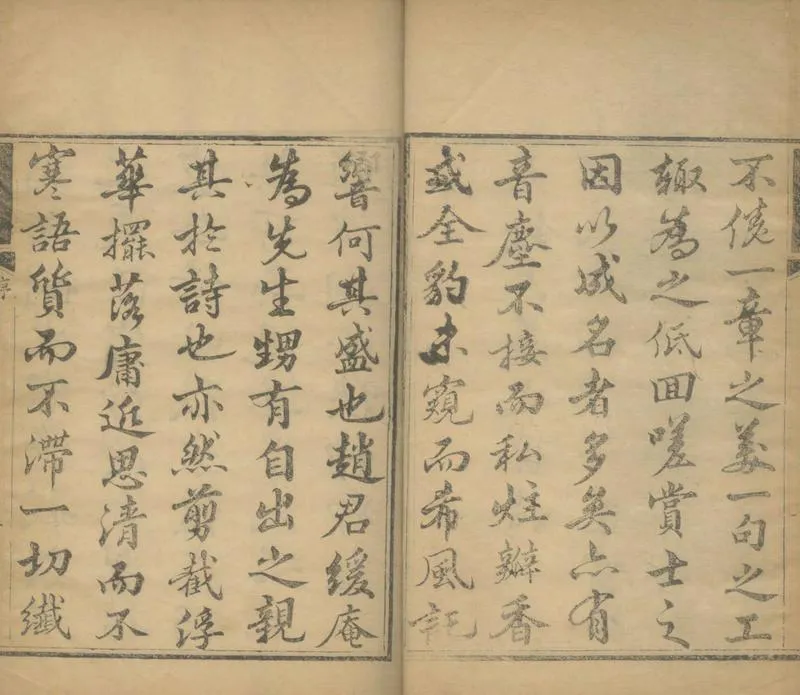 不倦一章之美一句之工
輙為之低回嗟賞士之
因以成名者多矣亦有
音塵不接而私炷瓣香
或全豹未窺而希風託
響何其盛也趙君緩庵
為先生甥有自出之親
其於詩也亦然剪截浮
華擺落庸近思清而不
寒語質而不滯一切纖
序